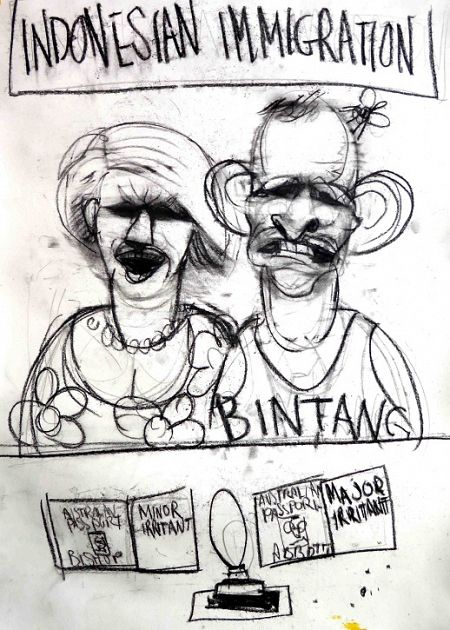 INDONESIAN IMMIGRATION
BINTANG
AUSTRALIAN
PASSPORT
BISHOP
MINOR
IRRITANT
AUSTRALIAN
PASSPORT
ABBOTT
MAJOR
IRRITANT